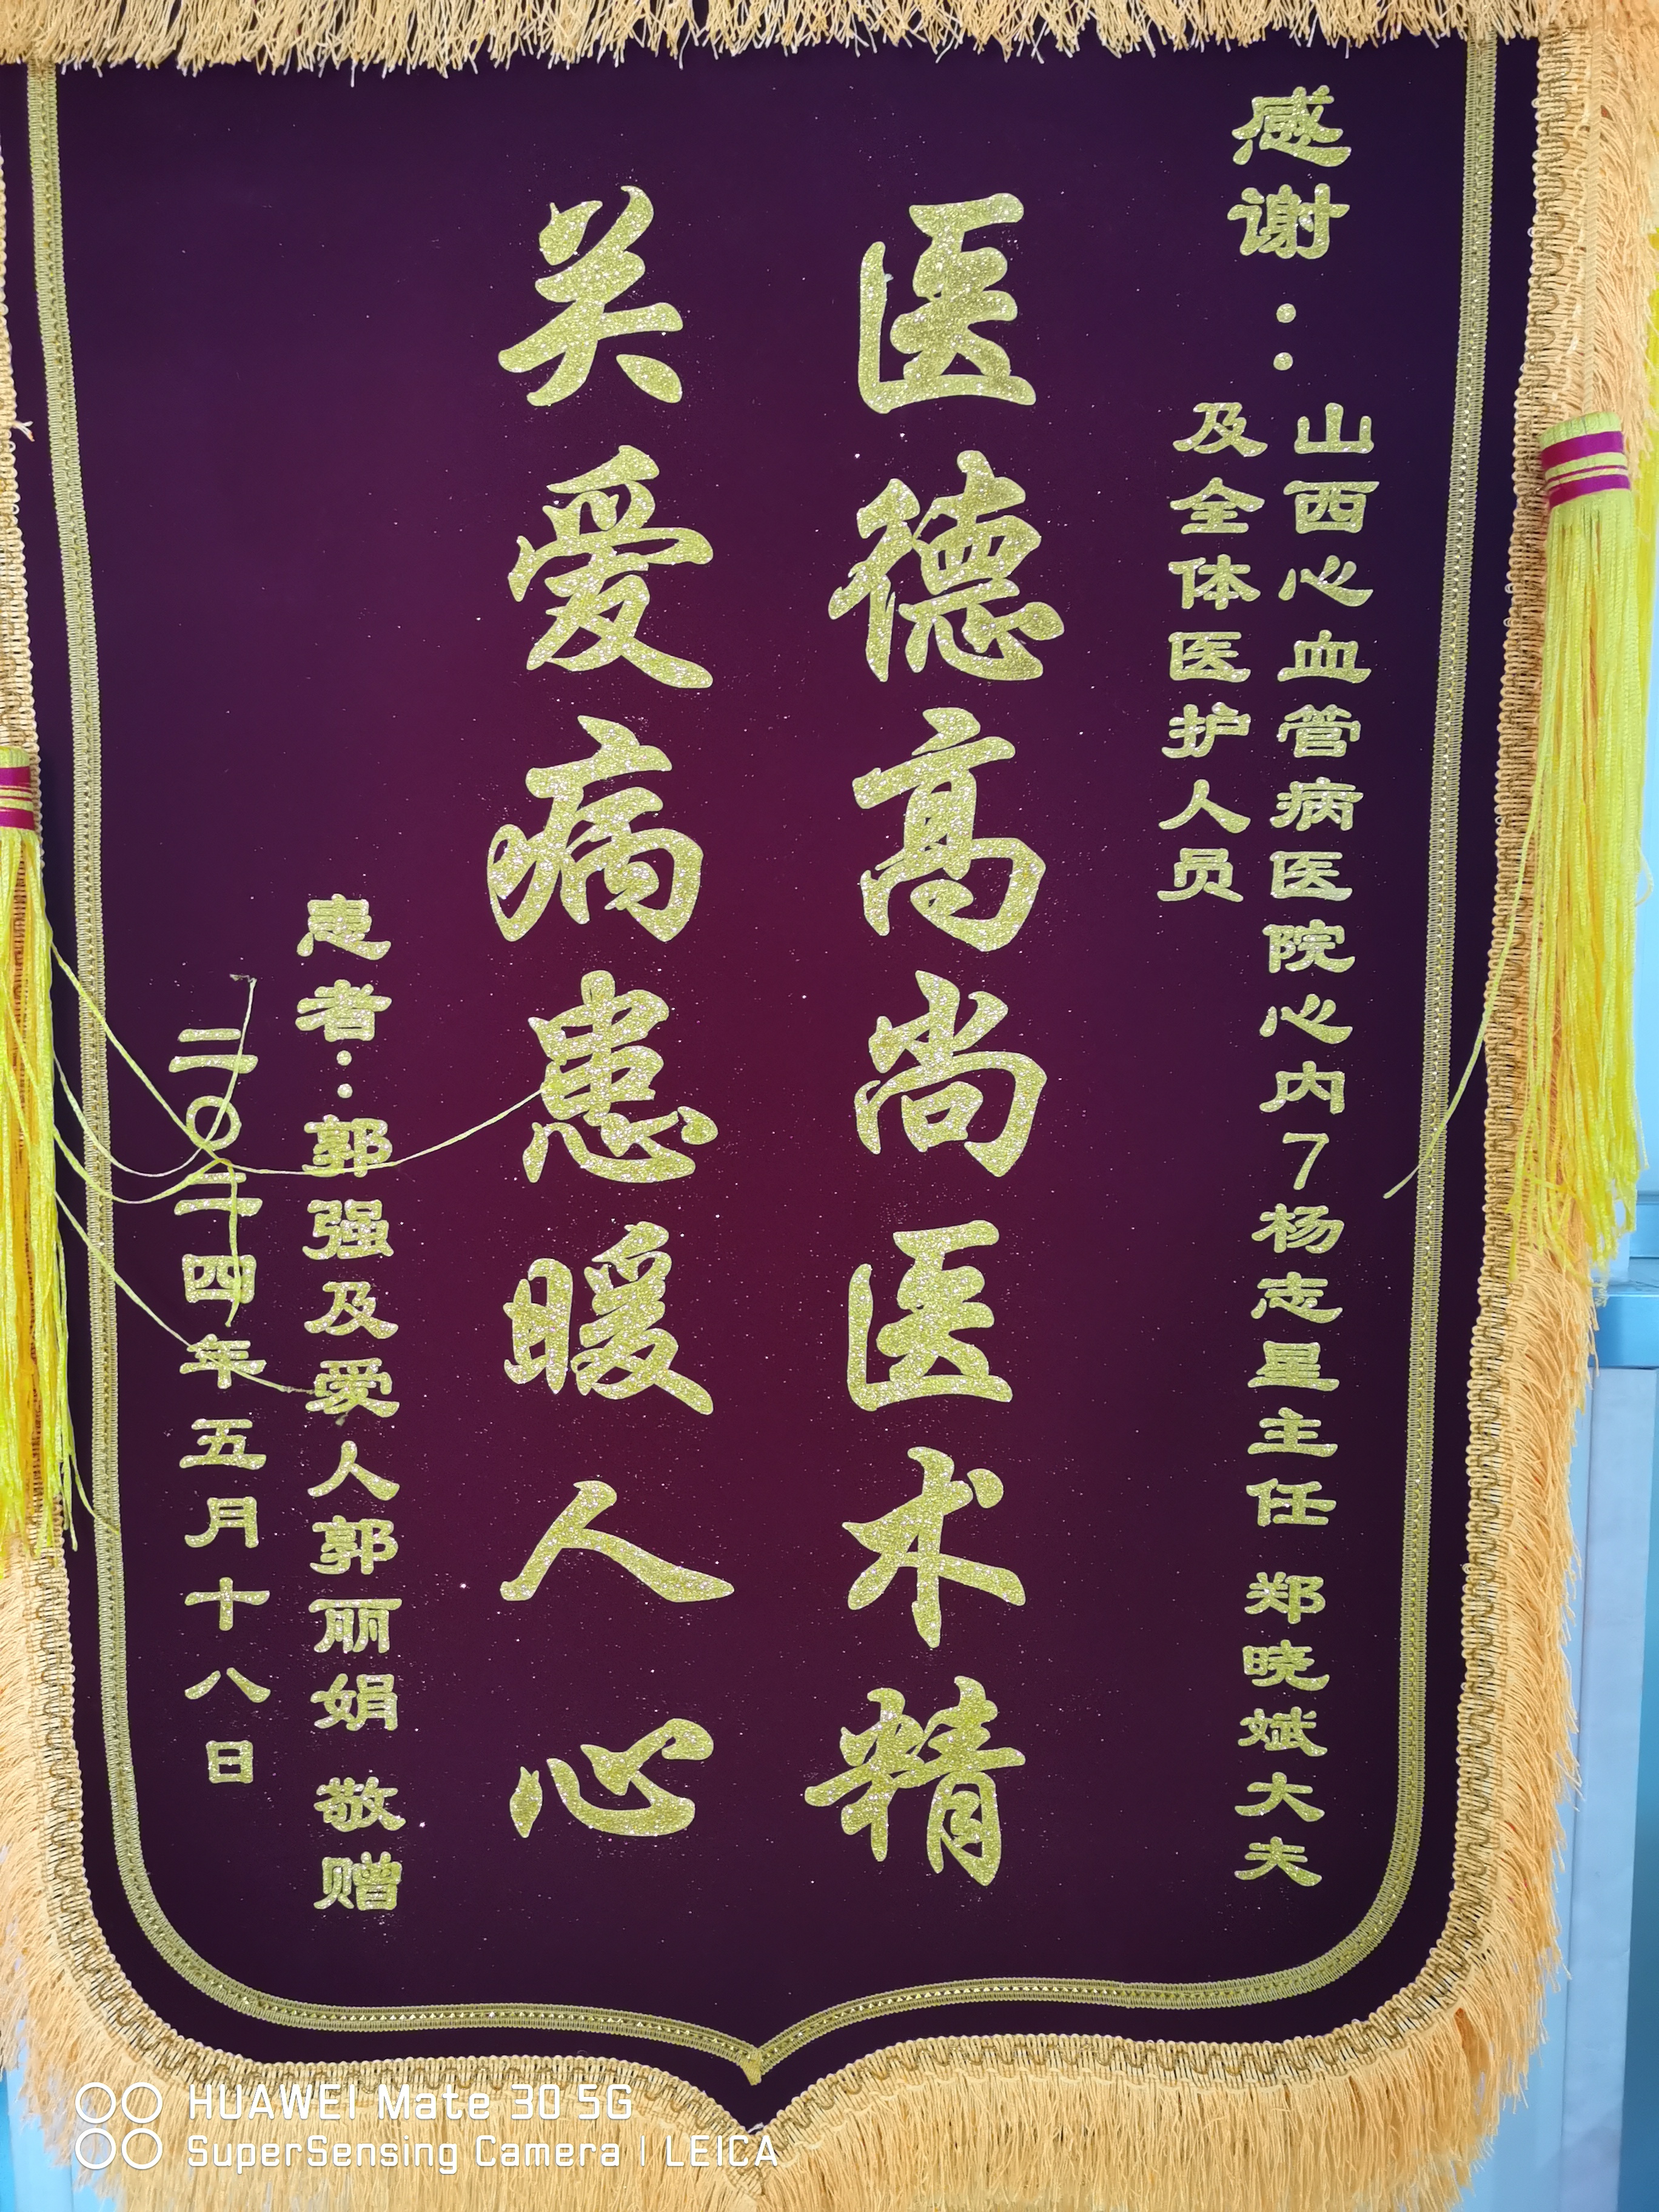 感谢：
山西心血管病医院心内7杨志星主任 郑晓斌大夫
及全体医护人员
医德高尚医术精
关爱病患暖人心
患者：郭强及爱人郭丽娟 敬赠
二〇二四年五月十八日
HUAWEI Mate 30 5G
SuperSensing Camera | LEICA